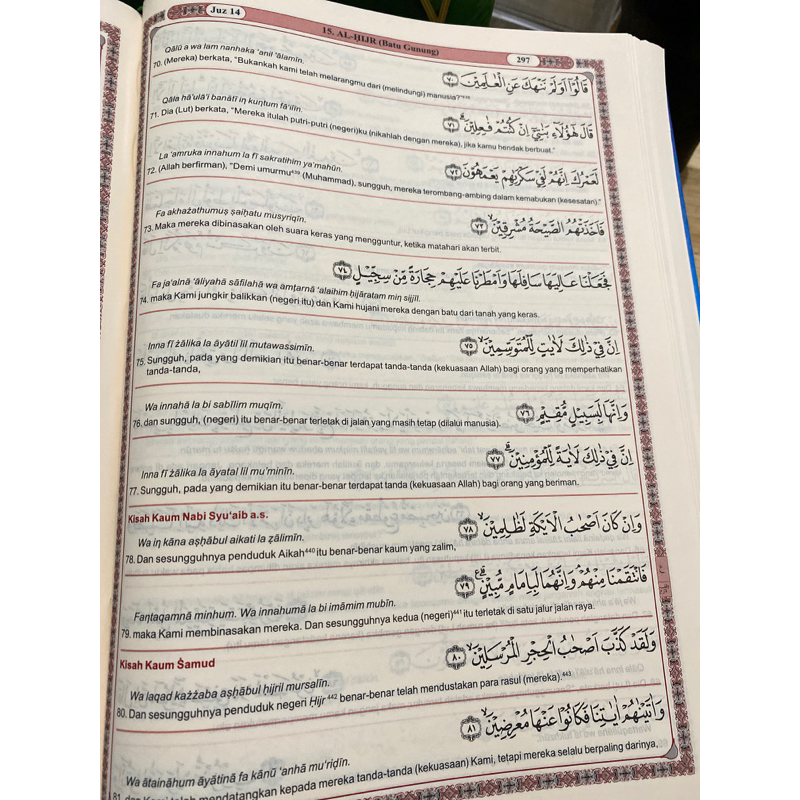 Juz 14
15. AL-ḤIJR (Batu Gunung)
297
قَالُوْٓا اَوَلَمْ نَنْهَكَ عَنِ الْعٰلَمِيْنَ ٧٠
Qālū a wa lam nanhaka ‘anil ‘ālamīn.
70. (Mereka) berkata, “Bukankah kami telah melarangmu dari (melindungi) manusia?”
قَالَ هٰٓؤُلَاۤءِ بَنٰتِيْٓ اِنْ كُنْتُمْ فٰعِلِيْنَۗ ٧١
Qāla hā'ulā'i banātī in kuntum fā‘ilīn.
71. Dia (Lut) berkata, “Mereka itulah putri-putri (negeri)ku (nikahlah dengan mereka), jika kamu hendak berbuat.”
لَعَمْرُكَ اِنَّهُمْ لَفِيْ سَكْرَتِهِمْ يَعْمَهُوْنَ ٧٢
La ‘amruka innahum la fī sakratihim ya‘mahūn.
72. (Allah berfirman), “Demi umurmu⁴³⁹ (Muhammad), sungguh, mereka terombang-ambing dalam kemabukan (kesesatan).”
فَاَخَذَتْهُمُ الصَّيْحَةُ مُشْرِقِيْنَۙ ٧٣
Fa akhażathumuṣ ṣaiḥatu musyriqīn.
73. Maka mereka dibinasakan oleh suara keras yang mengguntur, ketika matahari akan terbit.
فَجَعَلْنَا عَالِيَهَا سَافِلَهَا وَاَمْطَرْنَا عَلَيْهِمْ حِجَارَةً مِّنْ سِجِّيْلٍ ٧٤
Fa ja‘alnā ‘āliyahā sāfilahā wa amṭarnā ‘alaihim ḥijāratam min sijjīl.
74. maka Kami jungkir balikkan (negeri itu) dan Kami hujani mereka dengan batu dari tanah yang keras.
اِنَّ فِيْ ذٰلِكَ لَاٰيٰتٍ لِّلْمُتَوَسِّمِيْنَۙ ٧٥
Inna fī żālika la āyātil lil mutawassimīn.
75. Sungguh, pada yang demikian itu benar-benar terdapat tanda-tanda (kekuasaan Allah) bagi orang yang memperhatikan
tanda-tanda,
وَاِنَّهَا لَبِسَبِيْلٍ مُّقِيْمٍ ٧٦
Wa innahā la bi sabīlim muqīm.
76. dan sungguh, (negeri) itu benar-benar terletak di jalan yang masih tetap (dilalui manusia).
اِنَّ فِيْ ذٰلِكَ لَاٰيَةً لِّلْمُؤْمِنِيْنَۗ ٧٧
Inna fī żālika la āyatal lil mu'minīn.
77. Sungguh, pada yang demikian itu benar-benar terdapat tanda (kekuasaan Allah) bagi orang yang beriman.
Kisah Kaum Nabi Syu‘aib a.s.
وَاِنْ كَانَ اَصْحٰبُ الْاَيْكَةِ لَظٰلِمِيْنَۙ ٧٨
Wa in kāna aṣḥābul aikati la ẓālimīn.
78. Dan sesungguhnya penduduk Aikah⁴⁴⁰ itu benar-benar kaum yang zalim,
فَانْتَقَمْنَا مِنْهُمْۘ وَاِنَّهُمَا لَبِاِمَامٍ مُّبِيْنٍۗ ٧٩
Fantaqamnā minhum. Wa innahumā la bi imāmim mubīn.
79. maka Kami membinasakan mereka. Dan sesungguhnya kedua (negeri)⁴⁴¹ itu terletak di satu jalur jalan raya.
Kisah Kaum Ṡamud
وَلَقَدْ كَذَّبَ اَصْحٰبُ الْحِجْرِ الْمُرْسَلِيْنَۙ ٨٠
Wa laqad każżaba aṣḥābul ḥijril mursalīn.
80. Dan sesungguhnya penduduk negeri Ḥijr⁴⁴² benar-benar telah mendustakan para rasul (mereka).⁴⁴³
وَاٰتَيْنٰهُمْ اٰيٰتِنَا فَكَانُوْا عَنْهَا مُعْرِضِيْنَۙ ٨١
Wa ātaināhum āyātinā fa kānū ‘anhā mu‘riḍīn.
81. dan Kami telah mendatangkan kepada mereka tanda-tanda (kekuasaan) Kami, tetapi mereka selalu berpaling darinya,